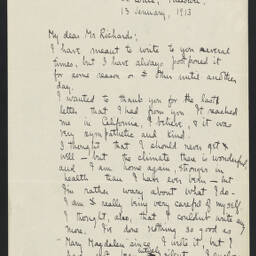 13 January, 1913
My dear Mr Richards;
I have meant to write to you several
times, but I have always postponed it
for some reason or & other until another
day.
I wanted to thank you for the last
letter that I had from you. It reached
me in California, I believe, & it was
very sympathetic and kind.
I thought that I should never get
well — but the climate there is wonderful
and I am home again, stronger in
health than I have ever been — but
I'm rather wary about what I do —
I am & really being very careful of myself
I thought, also, that I couldn't write any
more. I've done nothing so good as
Mary Magdalen since I wrote it, but I